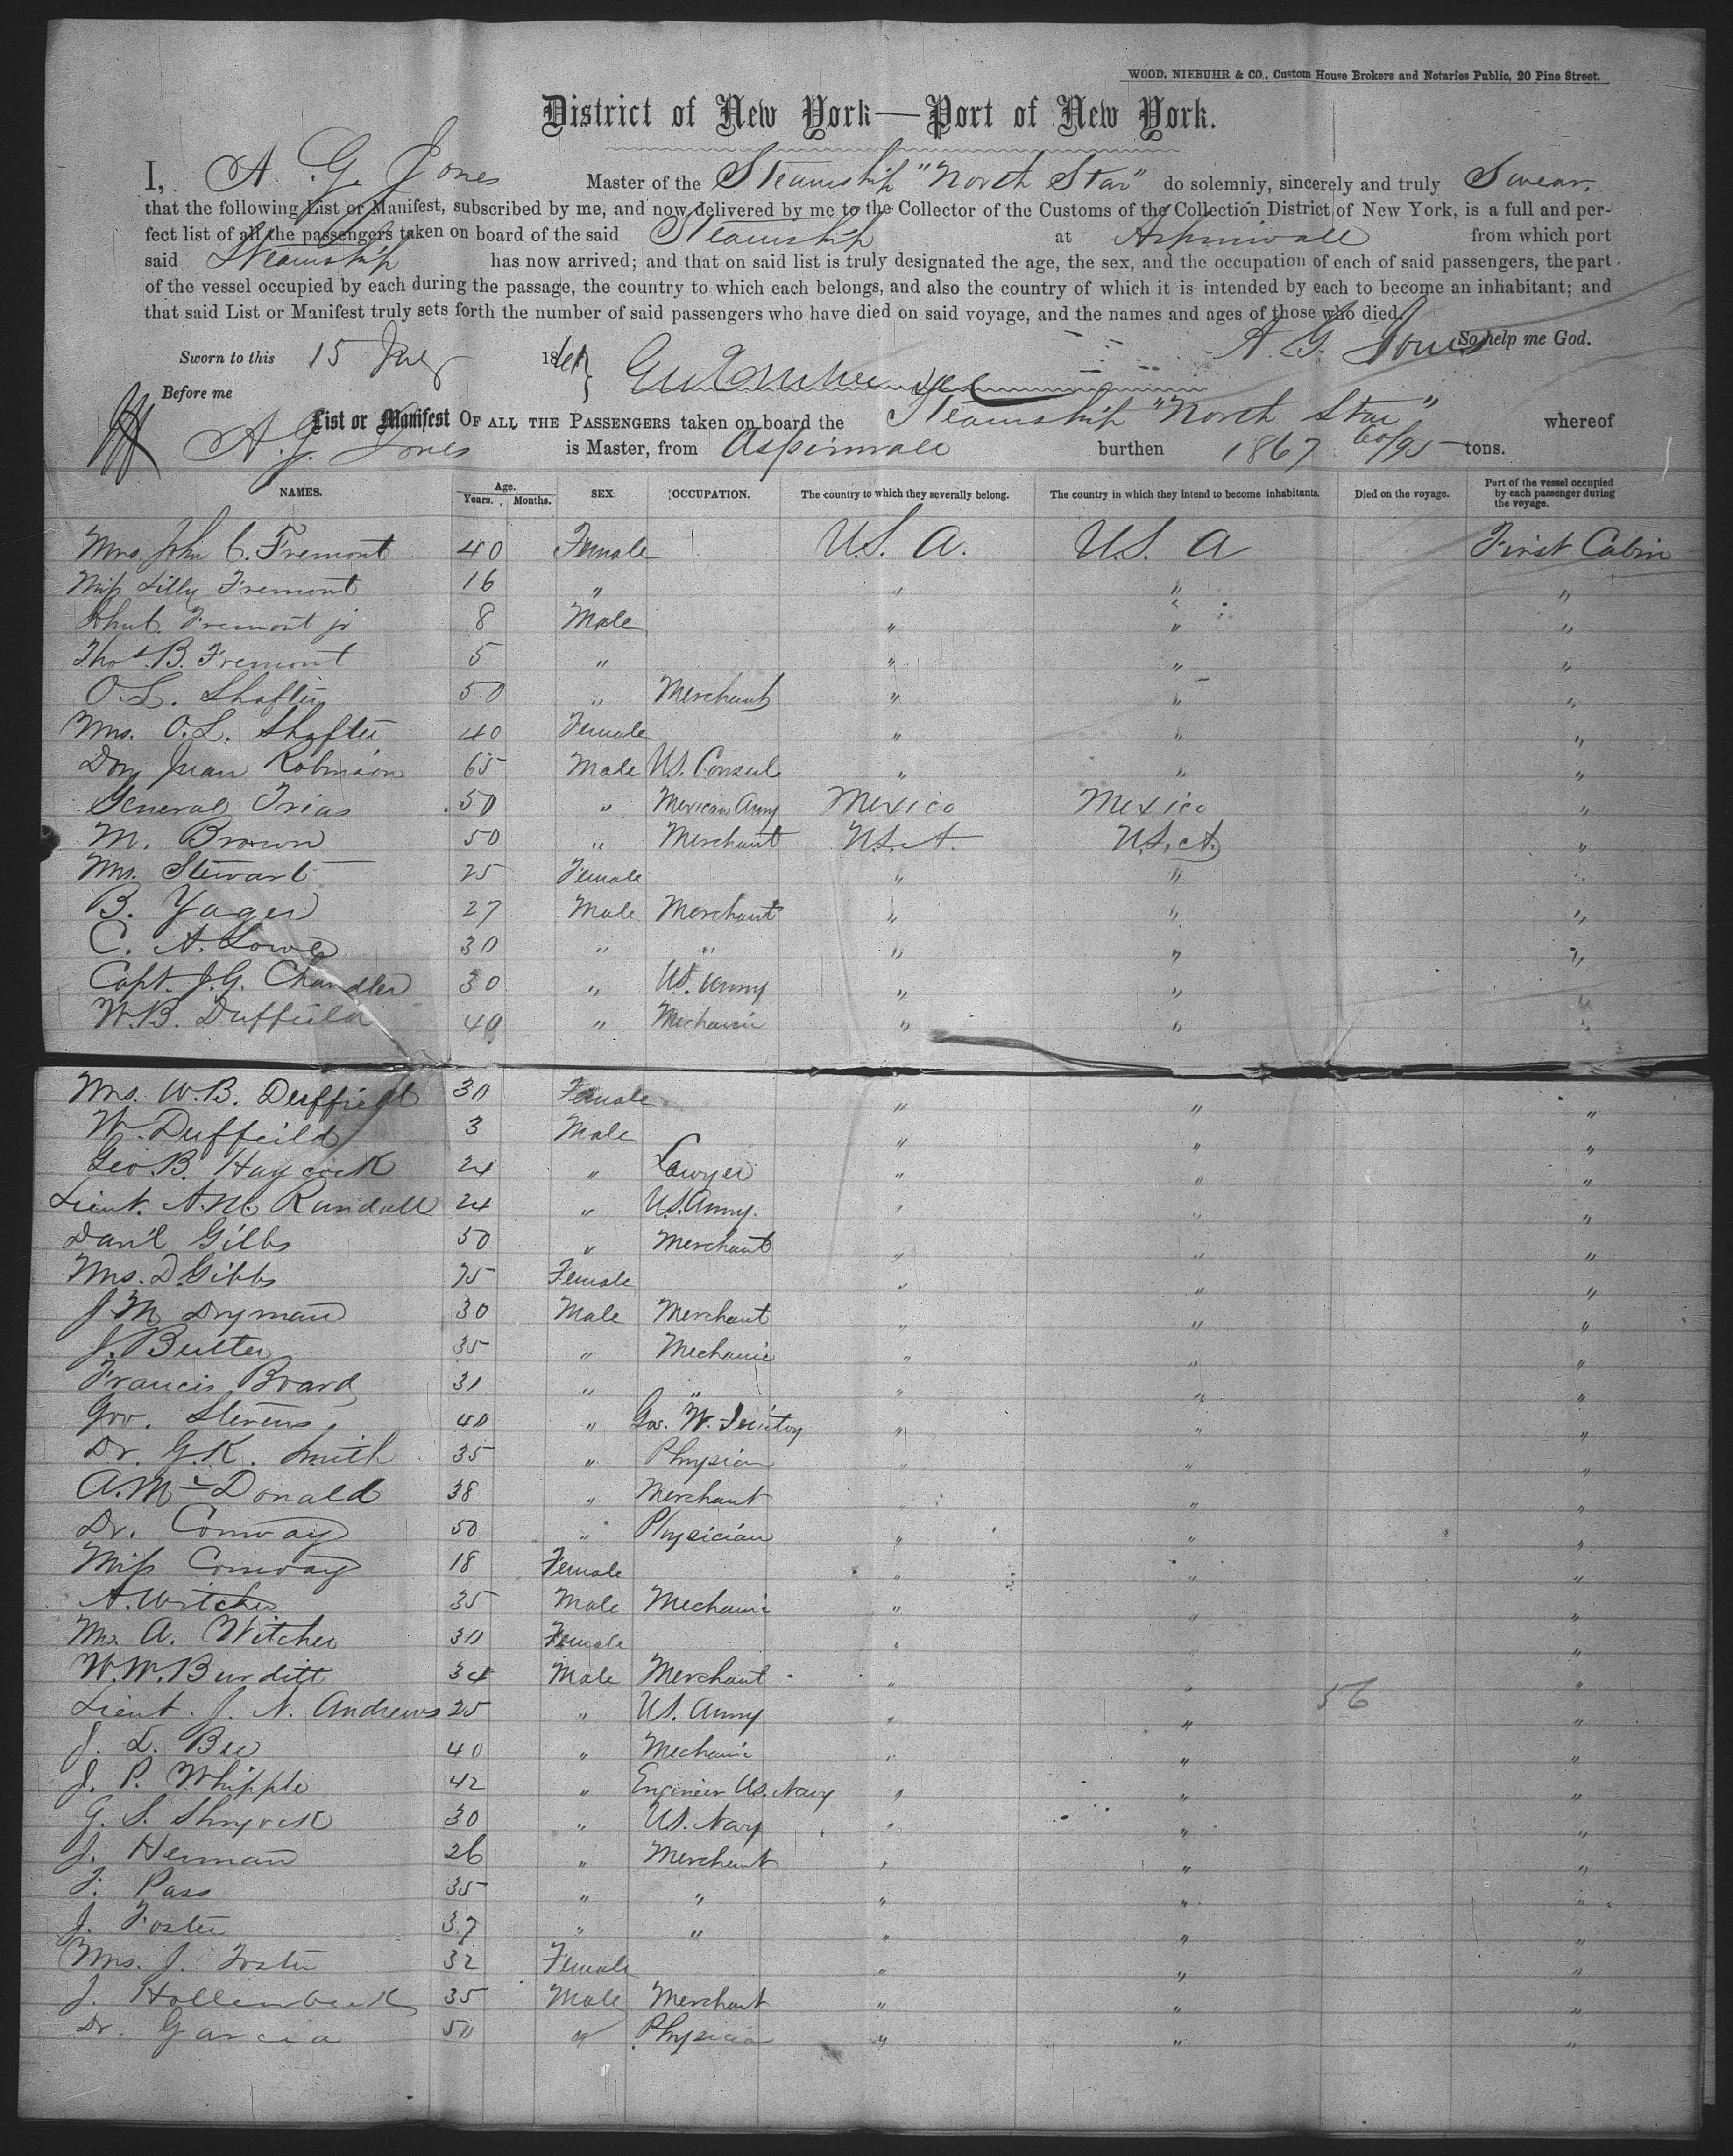 WOOD, NIEBUHR & CO., Custom House Brokers and Notaries Public, 20 Pine Street.
District of New York—Port of New York.
I, A. G. Jones Master of the Steamship "North Star" do solemnly, sincerely and truly Swear,
that the following List or Manifest, subscribed by me, and now delivered by me to the Collector of the Customs of the Collection District of New York, is a full and per-
fect list of all the passengers taken on board of the said Steamship at Aspinwall from which port
said Steamship has now arrived; and that on said list is truly designated the age, the sex, and the occupation of each of said passengers, the part
of the vessel occupied by each during the passage, the country to which each belongs, and also the country of which it is intended by each to become an inhabitant; and
that said List or Manifest truly sets forth the number of said passengers who have died on said voyage, and the names and ages of those who died.
So help me God.
Sworn to this 15 July 1861 A. G. Jones
Before me
List or Manifest OF ALL THE PASSENGERS taken on board the Steamship "North Star" whereof
A. G. Jones is Master, from Aspinwall burthen 1867 60/95 tons.
NAMES. Age. Years. Months. SEX. OCCUPATION. The country to which they severally belong. The country in which they intend to become inhabitants. Died on the voyage. Part of the vessel occupied by each passenger during the voyage.
Mrs. John C. Fremont 40 Female U.S. A. U.S. A First Cabin
Miss Lilly Fremont 16 " " " "
John C. Fremont jr 8 Male " " "
Thos. B. Fremont 5 " " " "
O. L. Shafter 50 " Merchant " " "
Mrs. O. L. Shafter 40 Female " " "
Don Juan Robinson 65 Male U.S. Consul " " "
General Trias 50 " Mexican Army Mexico Mexico "
M. Brown 50 " Merchant U.S.A. U.S.A. "
Mrs. Stewart 25 Female " " "
B. Yager 27 Male Merchant " " "
C. A. Lowe 30 " " " " "
Capt. J. G. Chandler 30 " U.S. Army " " "
W. B. Duffeild 40 " Mechanic " " "
Mrs. W. B. Duffield 30 Female " " "
W. Duffeild 3 Male " " "
Geo. B. Haycock 24 " Lawyer " " "
Lieut. A. M. Randall 24 " U.S. Army. " " "
Dan'l Gibbs 50 " Merchant " " "
Mrs. D. Gibbs 25 Female " " "
J. M. Dryman 30 Male Merchant " " "
J. Butler 35 " Mechanic " " "
Francis Board 31 " " " " "
Gov. Stevens. 40 " Gov. W. Territory " " "
Dr. G. K. Smith 35 " Physician " " "
A. McDonald 38 " Merchant " " "
Dr. Conway 50 " Physician " " "
Miss Conway 18 Female " " "
A. Witcher 35 Male Mechanic " " "
Mrs A. Witcher 30 Female " " "
W. W. Burditt 34 Male Merchant " " "
56
Lieut. J. N. Andrews 25 " U.S. Army " " "
J. L. Bee 40 " Mechanic " " "
J. P. Whipple 42 " Engineer U.S. Navy " " "
G. S. Shryock 30 " U.S. Navy " " "
J. Herman 26 " Merchant " " "
F. Pass 35 " " " " "
J. Foster 37 " " " " "
Mrs. J. Foster 32 Female " " "
J. Hollenbeck 35 Male Merchant " " "
Dr. Garcia 50 " Physician " " "